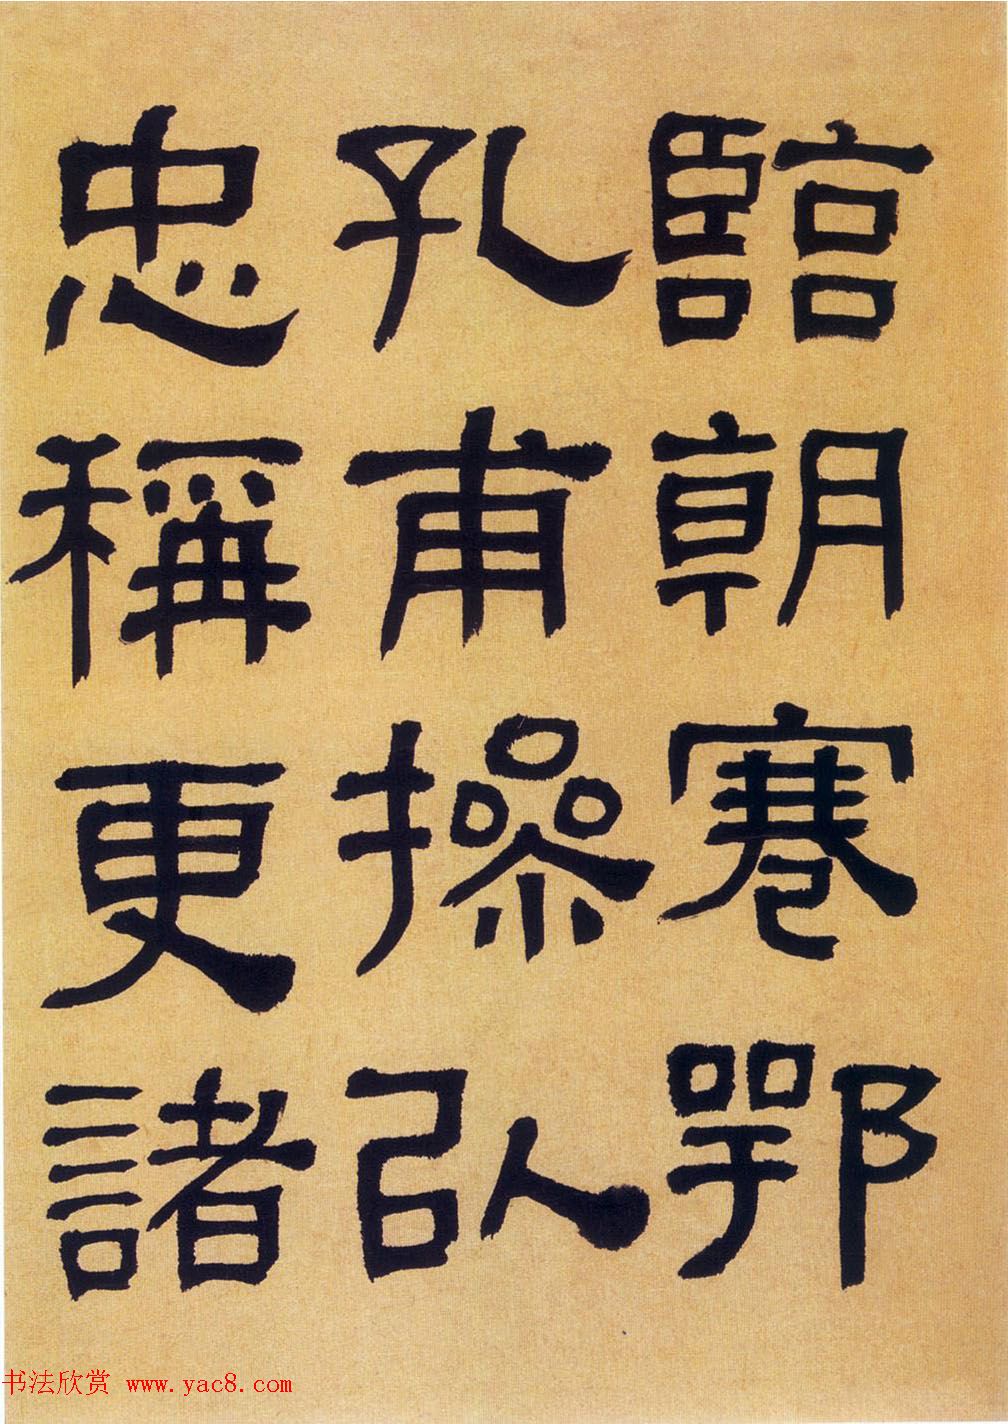 臨朝謇鄂
孔甫操以
忠稱更諸
书法欣赏 www.yac8.com